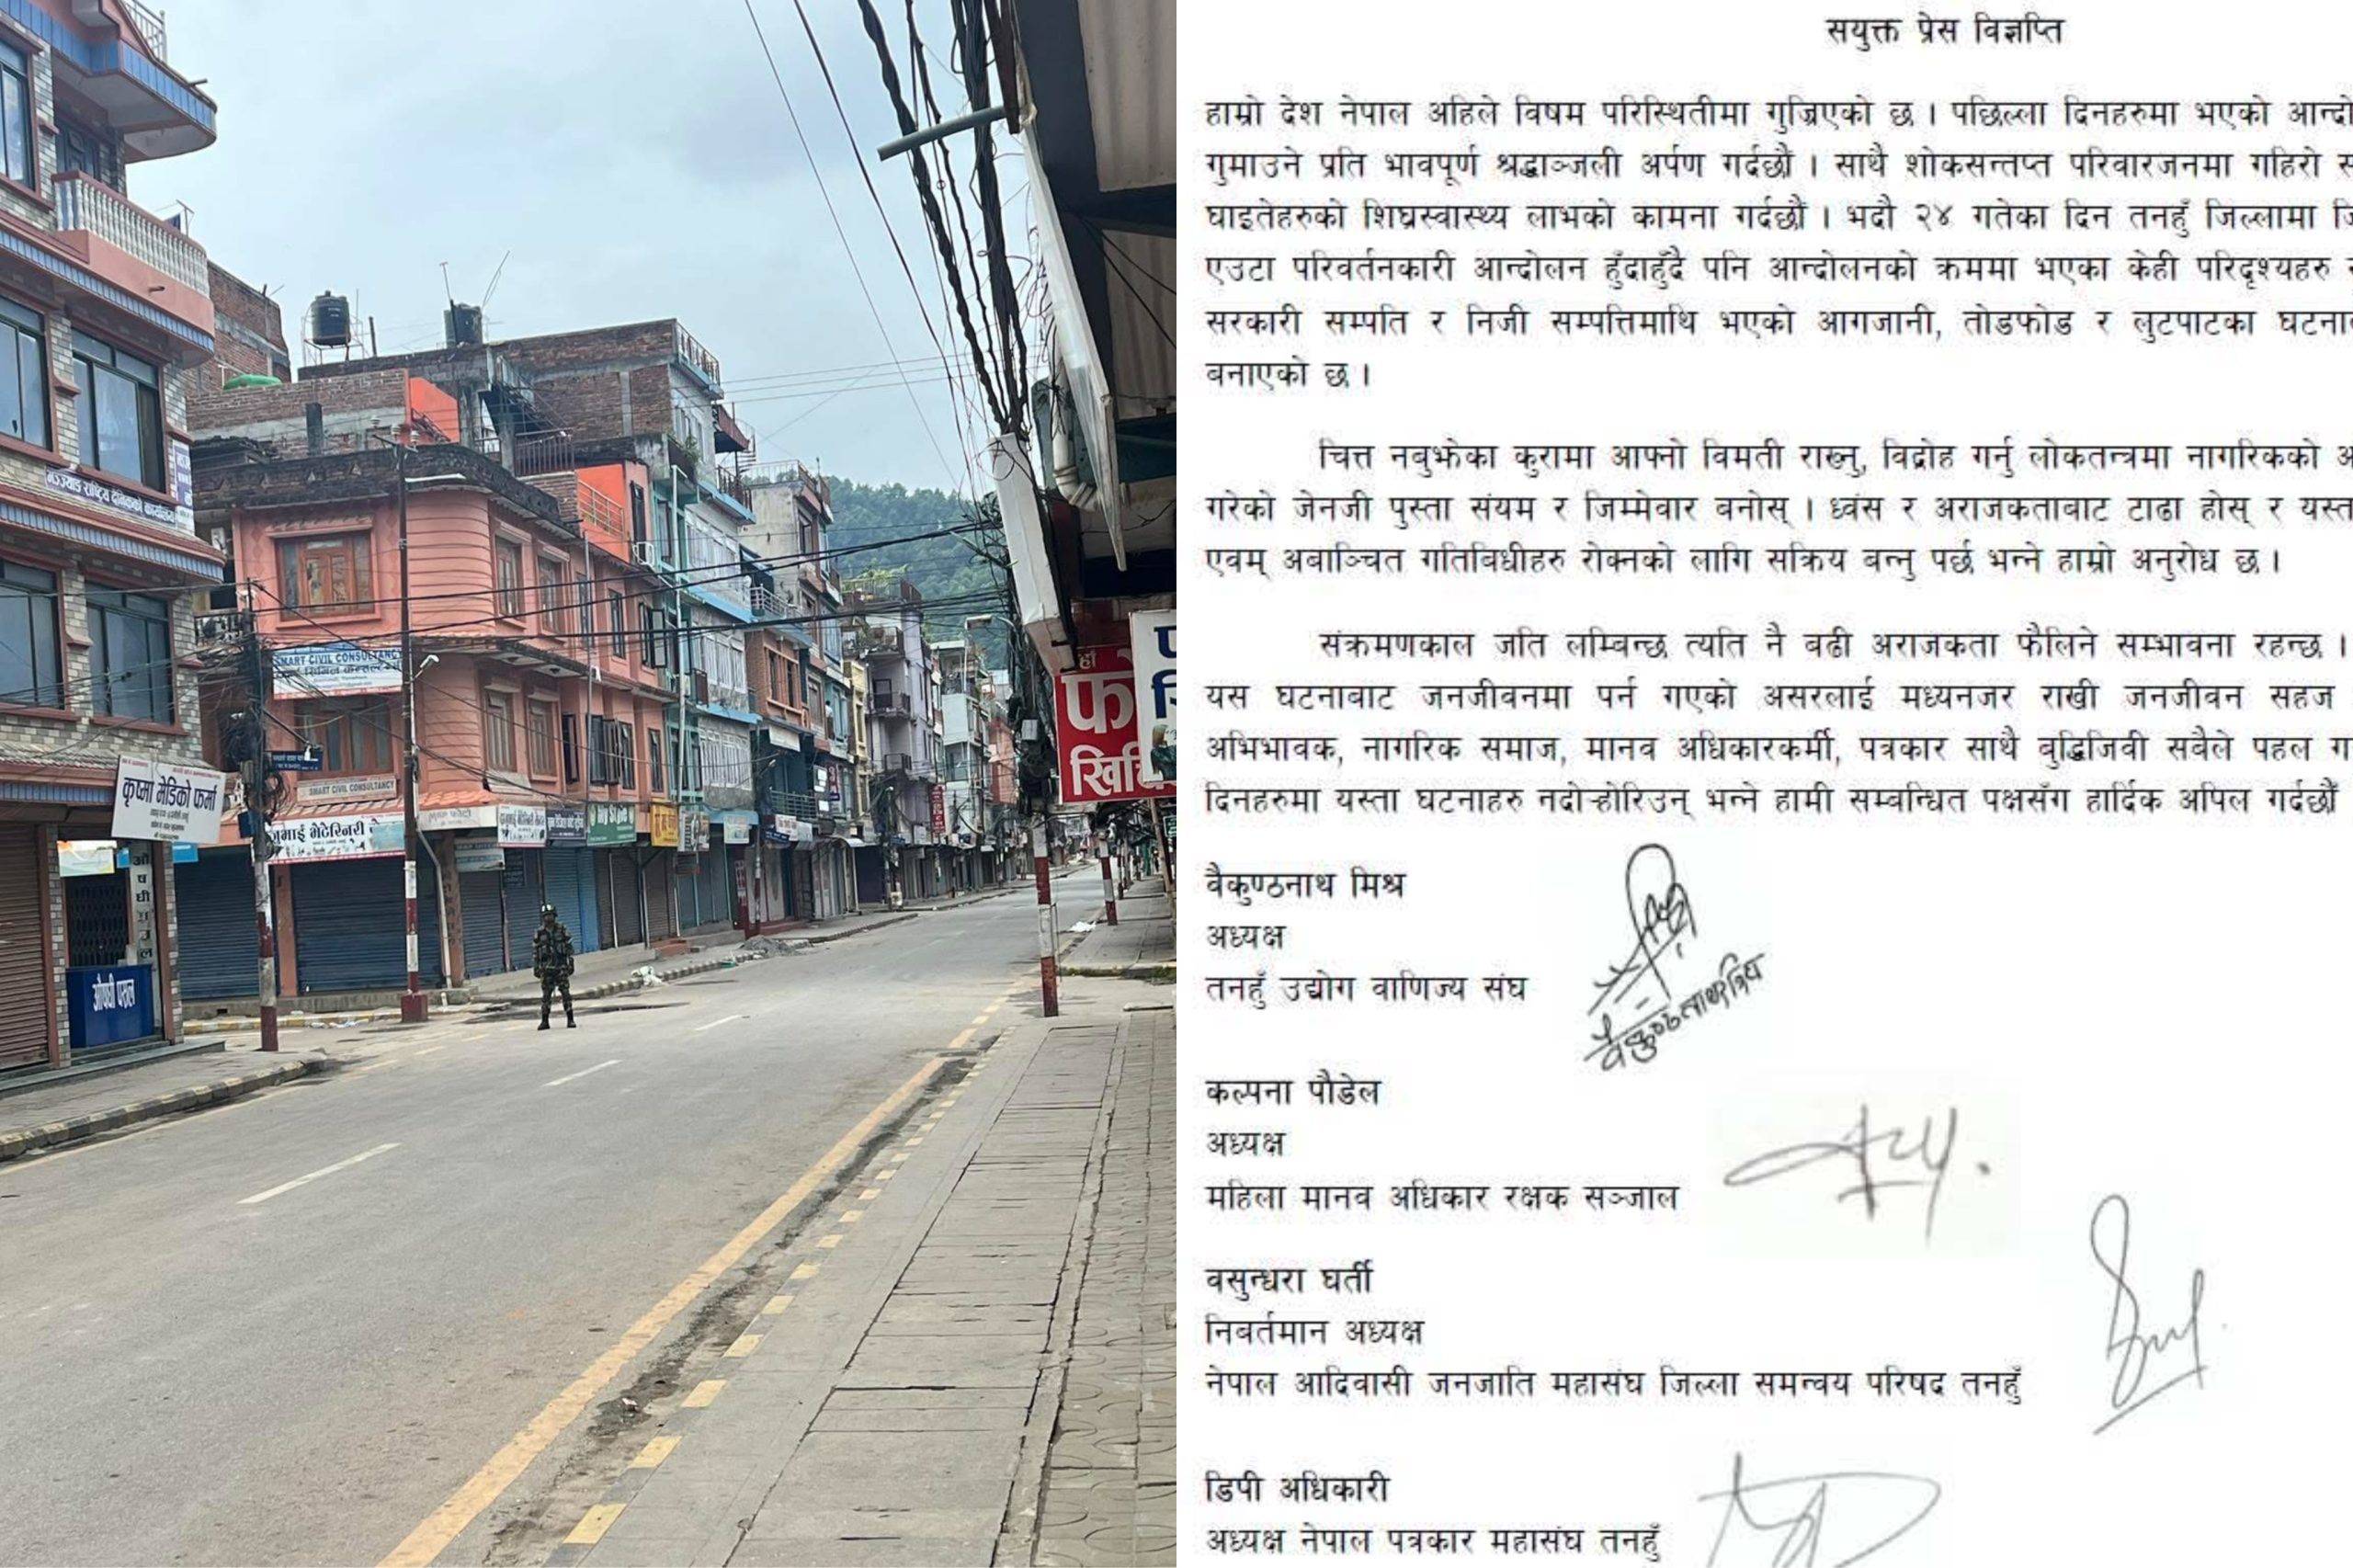 भञ्ज्याङ राष्ट्रिय दैनिकको कार्यालय
SMART CIVIL CONSULTANCY
SMART CIVIL CONSULTANCY
कृष्मा मेडिको फर्मा
भेटेरिनरी
औषधी पसल
फो
खिचि
सयुक्त प्रेस विज्ञप्ति
हाम्रो देश नेपाल अहिले विषम परिस्थितीमा गुज्रिएको छ । पछिल्ला दिनहरुमा भएको आन्दो
गुमाउने प्रति भावपूर्ण श्रद्धाञ्जली अर्पण गर्दछौं । साथै शोकसन्तप्त परिवारजनमा गहिरो स
घाइतेहरुको शिघ्रस्वास्थ्य लाभको कामना गर्दछौं । भदौ २४ गतेका दिन तनहुँ जिल्लामा जि
एउटा परिवर्तनकारी आन्दोलन हुँदाहुँदै पनि आन्दोलनको क्रममा भएका केही परिदृश्यहरु
सरकारी सम्पति र निजी सम्पत्तिमाथि भएको आगजानी, तोडफोड र लुटपाटका घटना
बनाएको छ ।
चित्त नबुझेका कुरामा आफ्नो विमती राख्नु, विद्रोह गर्नु लोकतन्त्रमा नागरिकको अ
गरेको जेनजी पुस्ता संयम र जिम्मेवार बनोस् । ध्वंस र अराजकताबाट टाढा होस् र यस्त
एवम् अबाञ्चित गतिबिधीहरु रोक्नको लागि सक्रिय बन्नु पर्छ भन्ने हाम्रो अनुरोध छ ।
संक्रमणकाल जति लम्बिन्छ त्यति नै बढी अराजकता फैलिने सम्भावना रहन्छ ।
यस घटनाबाट जनजीवनमा पर्न गएको असरलाई मध्यनजर राखी जनजीवन सहज
अभिभावक, नागरिक समाज, मानव अधिकारकर्मी, पत्रकार साथै बुद्धिजिवी सबैले पहल ग
दिनहरुमा यस्ता घटनाहरु नदोर्‍होरिउन् भन्ने हामी सम्बन्धित पक्षसँग हार्दिक अपिल गर्दछौं
वैकुण्ठनाथ मिश्र
अध्यक्ष
तनहुँ उद्योग वाणिज्य संघ
वैकुण्ठनाथ मिश्र
कल्पना पौडेल
अध्यक्ष
महिला मानव अधिकार रक्षक सञ्जाल
वसुन्धरा घर्ती
निबर्तमान अध्यक्ष
नेपाल आदिवासी जनजाति महासंघ जिल्ला समन्वय परिषद तनहुँ
डिपी अधिकारी
अध्यक्ष नेपाल पत्रकार महासंघ तनहुँ